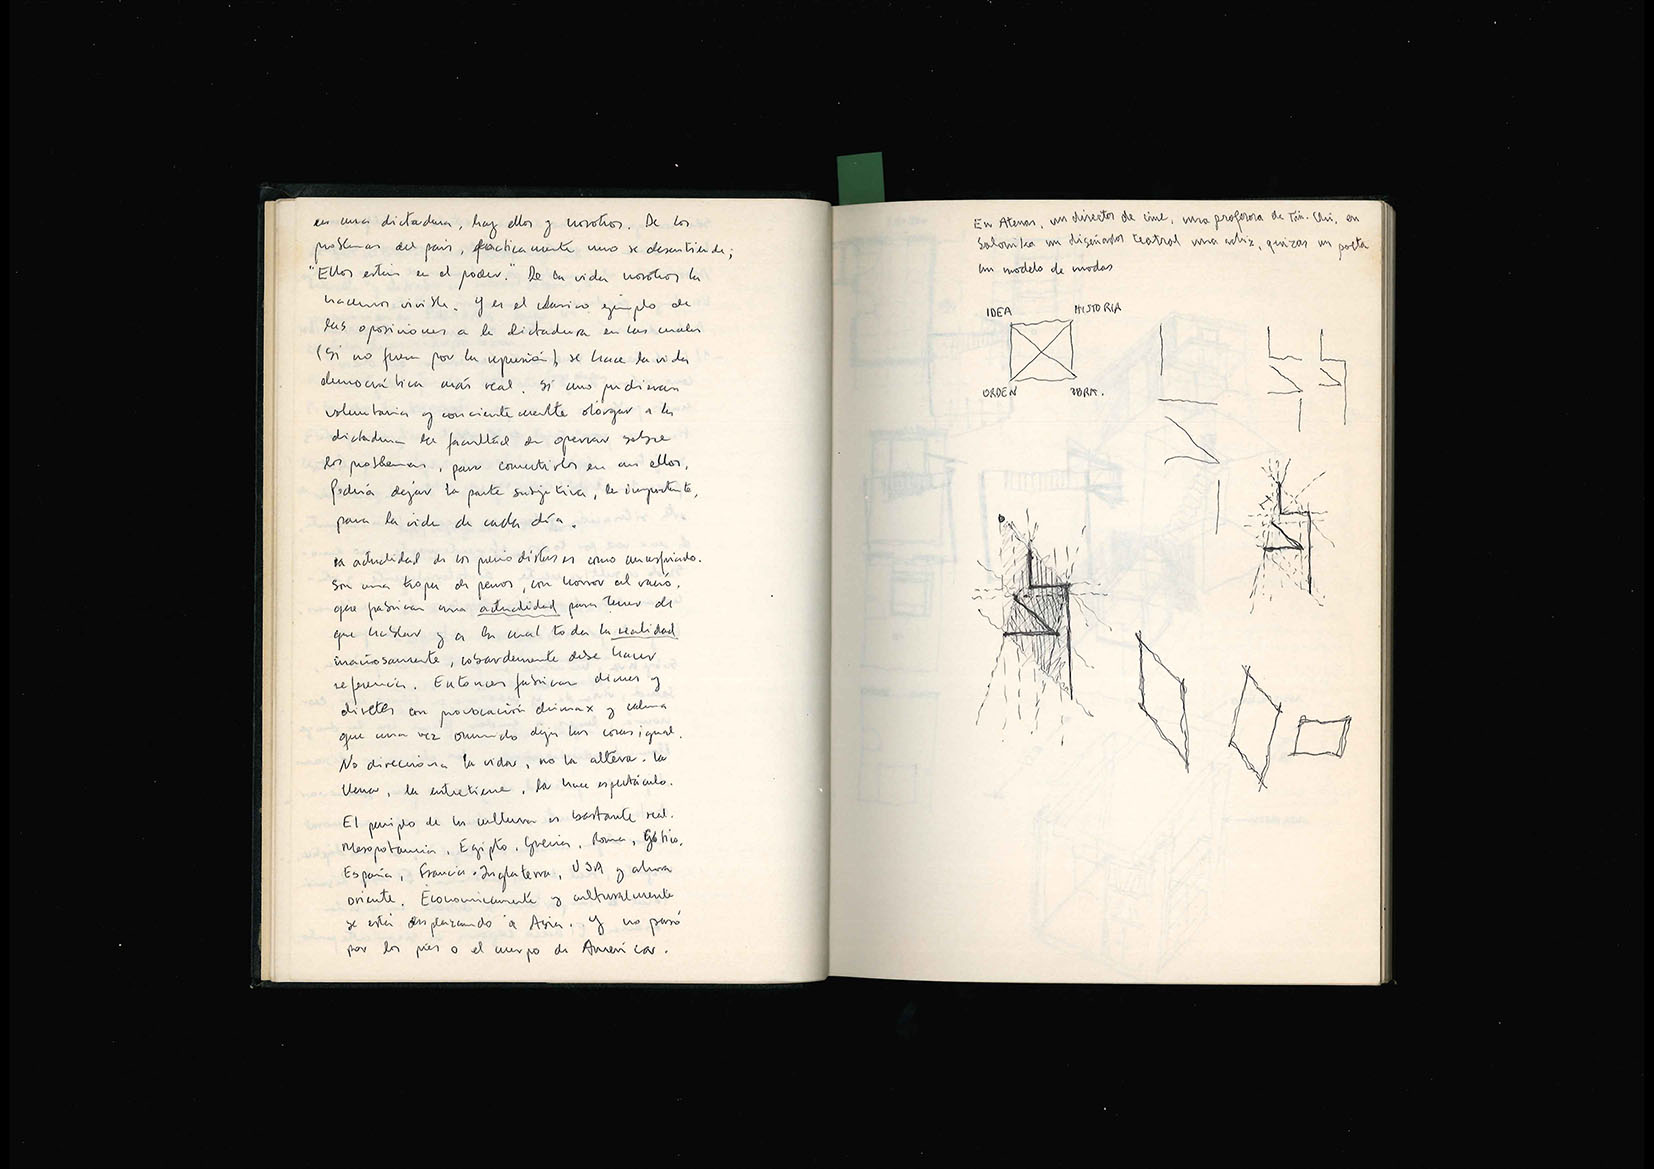 en una dictadura, hay ellos y nosotros. De los
problemas del país, prácticamente uno se desentiende;
"Ellos están en el poder." De la vida nosotros la
hacemos vivible. Y es el clásico ejemplo de
las oposiciones a la dictadura en las cuales
(si no fuera por la represión) se hace la vida
democrática más real. Si uno pudiera
voluntaria y concientemente otorgar a la
dictadura la facultad de operar sobre
los problemas, para convertirlos en un ellos,
Podría dejar la parte subjetiva, la importante,
para la vida de cada día.
La actualidad de los periodistas es como un resfriado.
Son una tropa de perros, con horror al vacío,
que fabrican una actualidad para tener de
que hablar y a la cual toda la realidad
mañosamente, cobardemente debe hacer
referencia. Entonces fabrican dimes y
diretes con provocación climax y calma
que una vez ocurrido deja las cosas igual.
No direcciona la vida, no la altera. La
llena, la entretiene, la hace espectáculo.
El periplo de las culturas es bastante real.
Mesopotamia, Egipto, Grecia, Roma, Gótico,
España, Francia-Inglaterra, USA y ahora
oriente. Economicamente y culturalmente
se está desplazando a Asia. Y no pasó
por los pies o el cuerpo de América.
En Atenas, un director de cine, una profesora de Tai-Chi, en
Salonika un diseñador teatral una actriz, quizas un poeta
un modelo de modas
IDEA HISTORIA
ORDEN OBRA.